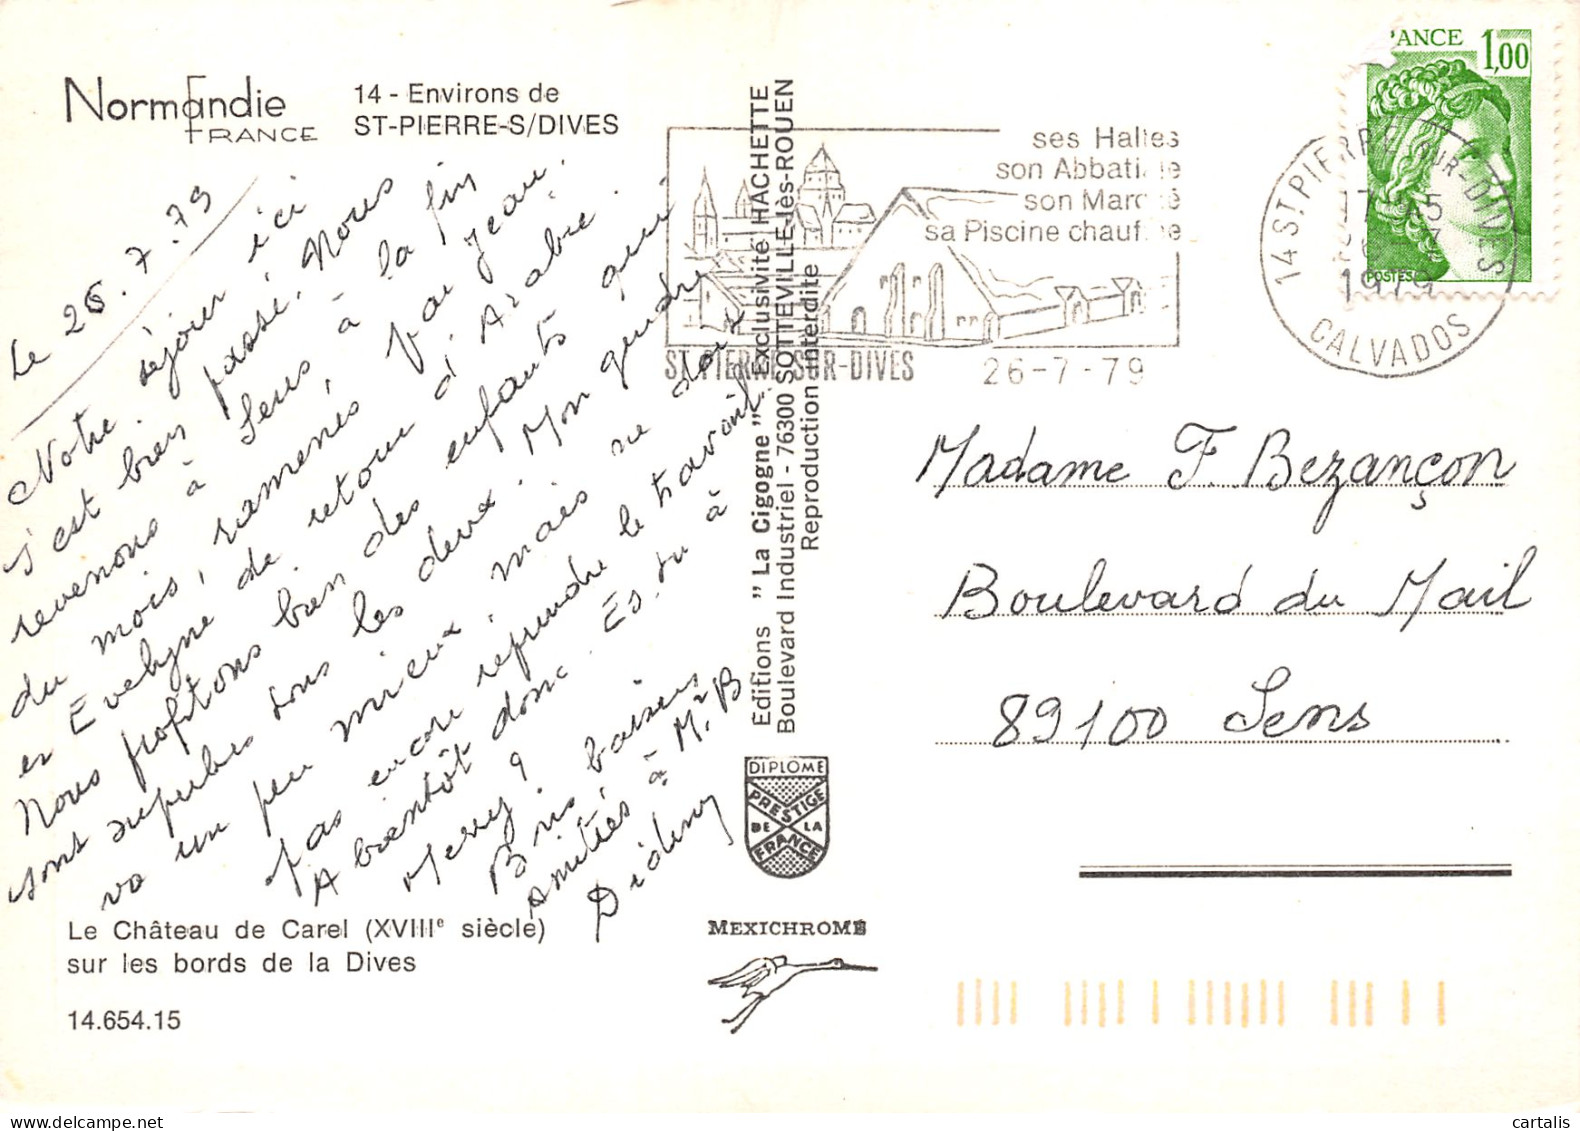 Normandie
FRANCE
14 - Environs de
ST-PIERRE-S/DIVES
Le 26.7.79
Notre séjour ici
s'est bien passé. Nous
revenons à Sens à la fin
du mois, ramenés par Jean
et Evelyne de retour d'Arabie.
Nous profitons bien des enfants qui
sont superbes tous les deux. Mon gendre
va un peu mieux mais ne doit
pas encore reprendre le travail.
A bientôt donc. Es-tu à
Merry ?
Bons baisers
Amitiés à Mr B
Le Château de Carel (XVIIIe siècle)
sur les bords de la Dives
14.654.15
Editions "La Cigogne" Exclusivité HACHETTE
Boulevard Industriel - 76300 SOTTEVILLE-lès-ROUEN
Reproduction Interdite
DIPLOME
PRESTIGE
DE LA
FRANCE
MEXICHROME
ses Halles
son Abbatiale
son Marché
sa Piscine chauffée
ST PIERRE-SUR-DIVES
26-7-79
14 ST PIERRE SUR-DIVES
1979
CALVADOS
ANCE 1,00
POSTES
Madame F. Bezançon
Boulevard du Mail
89100 Sens
cartalis